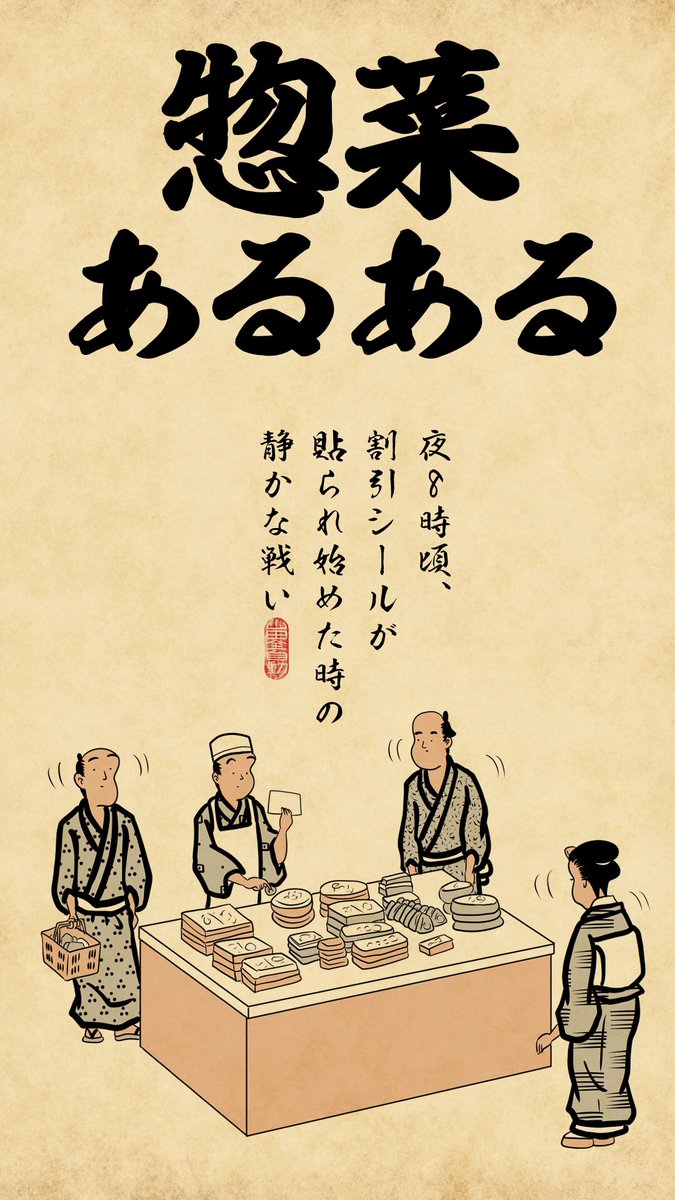 惣菜
あるある
夜8時頃、
割引シールが
貼られ始めた時の
静かな戦い